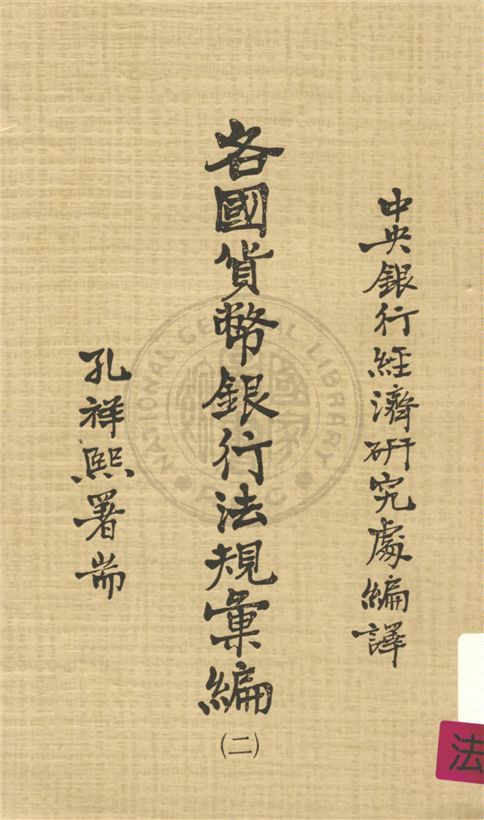 中央銀行經濟研究處編譯
各國貨幣銀行法規彙編
(二)
孔祥熙署耑
NATIONAL CENTRAL LIBRARY
法